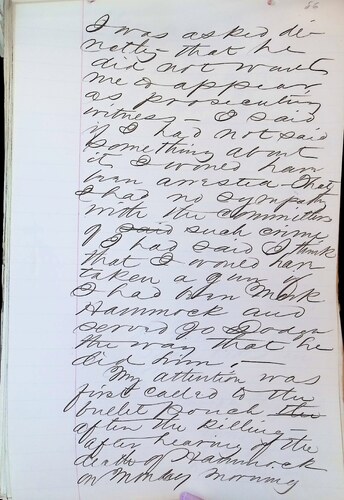 56
I was asked di-
rectly that he
did not want
me to appear
as prosecuting
witness - I said
if I had not said
something about
it I would have
been arrested - that
I had no sympathy
with the committers
of said such crime
I had said I think
that I would have
taken a gun if
I had been Mark
Hammock and
served Jo Dodson
the way that he
did him. -
My attention was
first called to the
bullet pouch the
after the killing -
after hearing of the
death of Hammock
on Monday morning